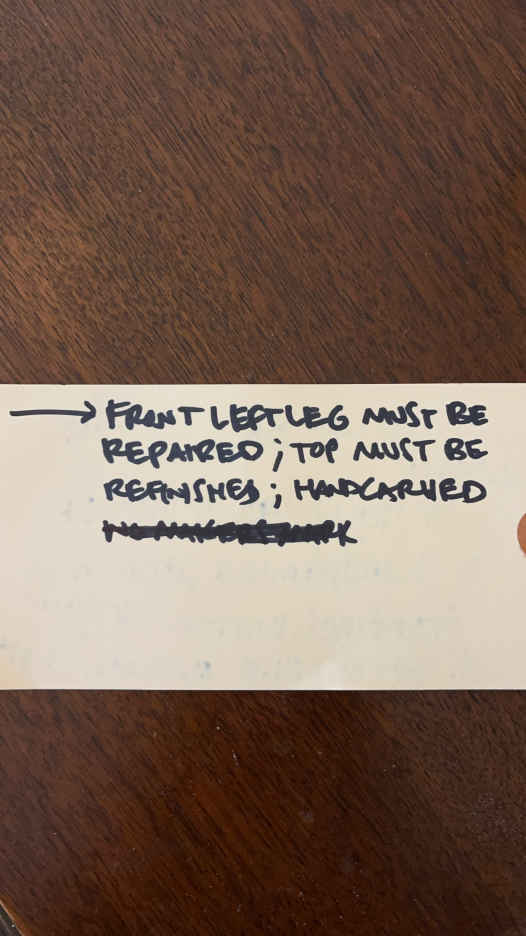 → FRONT LEFT LEG MUST BE
REPAIRED; TOP MUST BE
REFINISHED; HANDCARVED
NO MAKERS MARK